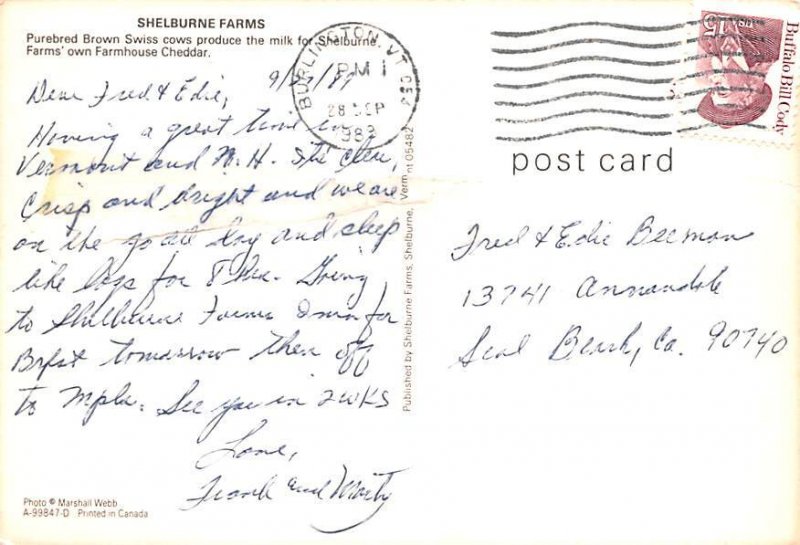 SHELBURNE FARMS
Purebred Brown Swiss cows produce the milk for Shelburne
Farms' own Farmhouse Cheddar.
Dear Fred & Edie,
Having a great time in
Vermont and N.H. Its clear,
crisp and bright and we are
on the go all day and sleep
like logs for 8 hrs. Going
to Shelburne Farms Inn for
Brfst tomorrow then off
to Mpls. See you in 2 wks
Love,
Frank and Marty
Photo © Marshall Webb
A-99847-D Printed in Canada
Published by Shelburne Farms, Shelburne, Vermont 05482
BURLINGTON, VT
PM
28 SEP
USA 15
Buffalo Bill Cody
post card
Fred & Edie Beeman
13741 Annandale
Seal Beach, Ca. 90740